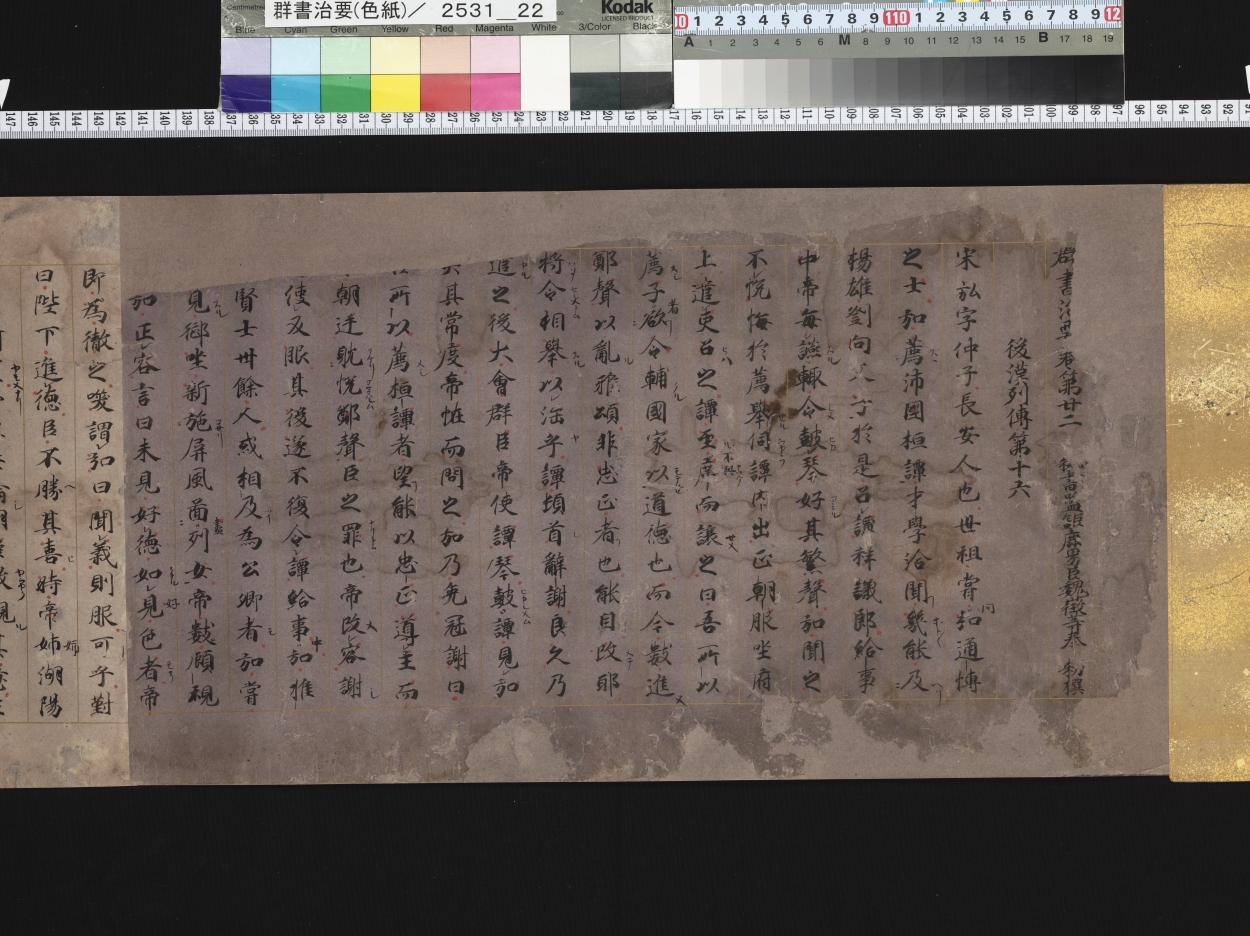 群書治要(色紙)／ 2531__22
Kodak
LICENSED PRODUCT
Blue Cyan Green Yellow Red Magenta White 3/Color Black
群書治要卷第廿二 秘書監鉅鹿男臣魏徵等奉 勅撰
後漢列傳第十六
宋弘字仲子長安人也世祖嘗問弘通博
之士弘薦沛國桓譚才學洽聞幾能及
楊雄劉向父子於是召譚拜議郎給事
中帝每讌輒令皷琴好其繁聲弘聞之
不悅悔於薦舉伺譚內出正朝服坐府
上遣吏召之譚至不與席而讓之曰吾所以
薦子者欲令輔國家以道德也而今數進
鄭聲以亂雅頌非忠正者也能自改耶
將令相舉以法乎譚頓首辭謝良久乃
遣之後大會群臣帝使譚琴皷譚見弘
失其常度帝恠而問之弘乃免冠謝曰
臣所以薦桓譚者望能以忠正導主而
令朝廷耽悅鄭聲臣之罪也帝改容謝
使反服其後遂不復令譚給事中弘推
賢士卅餘人或相及為公卿者弘當
見御坐新施屏風啚列女帝數顧視
弘正容言曰未見好德如好色者帝
即為徹之𠷣謂弘曰聞義則服可乎對
曰陛下進德臣不勝其喜時帝姉湖陽